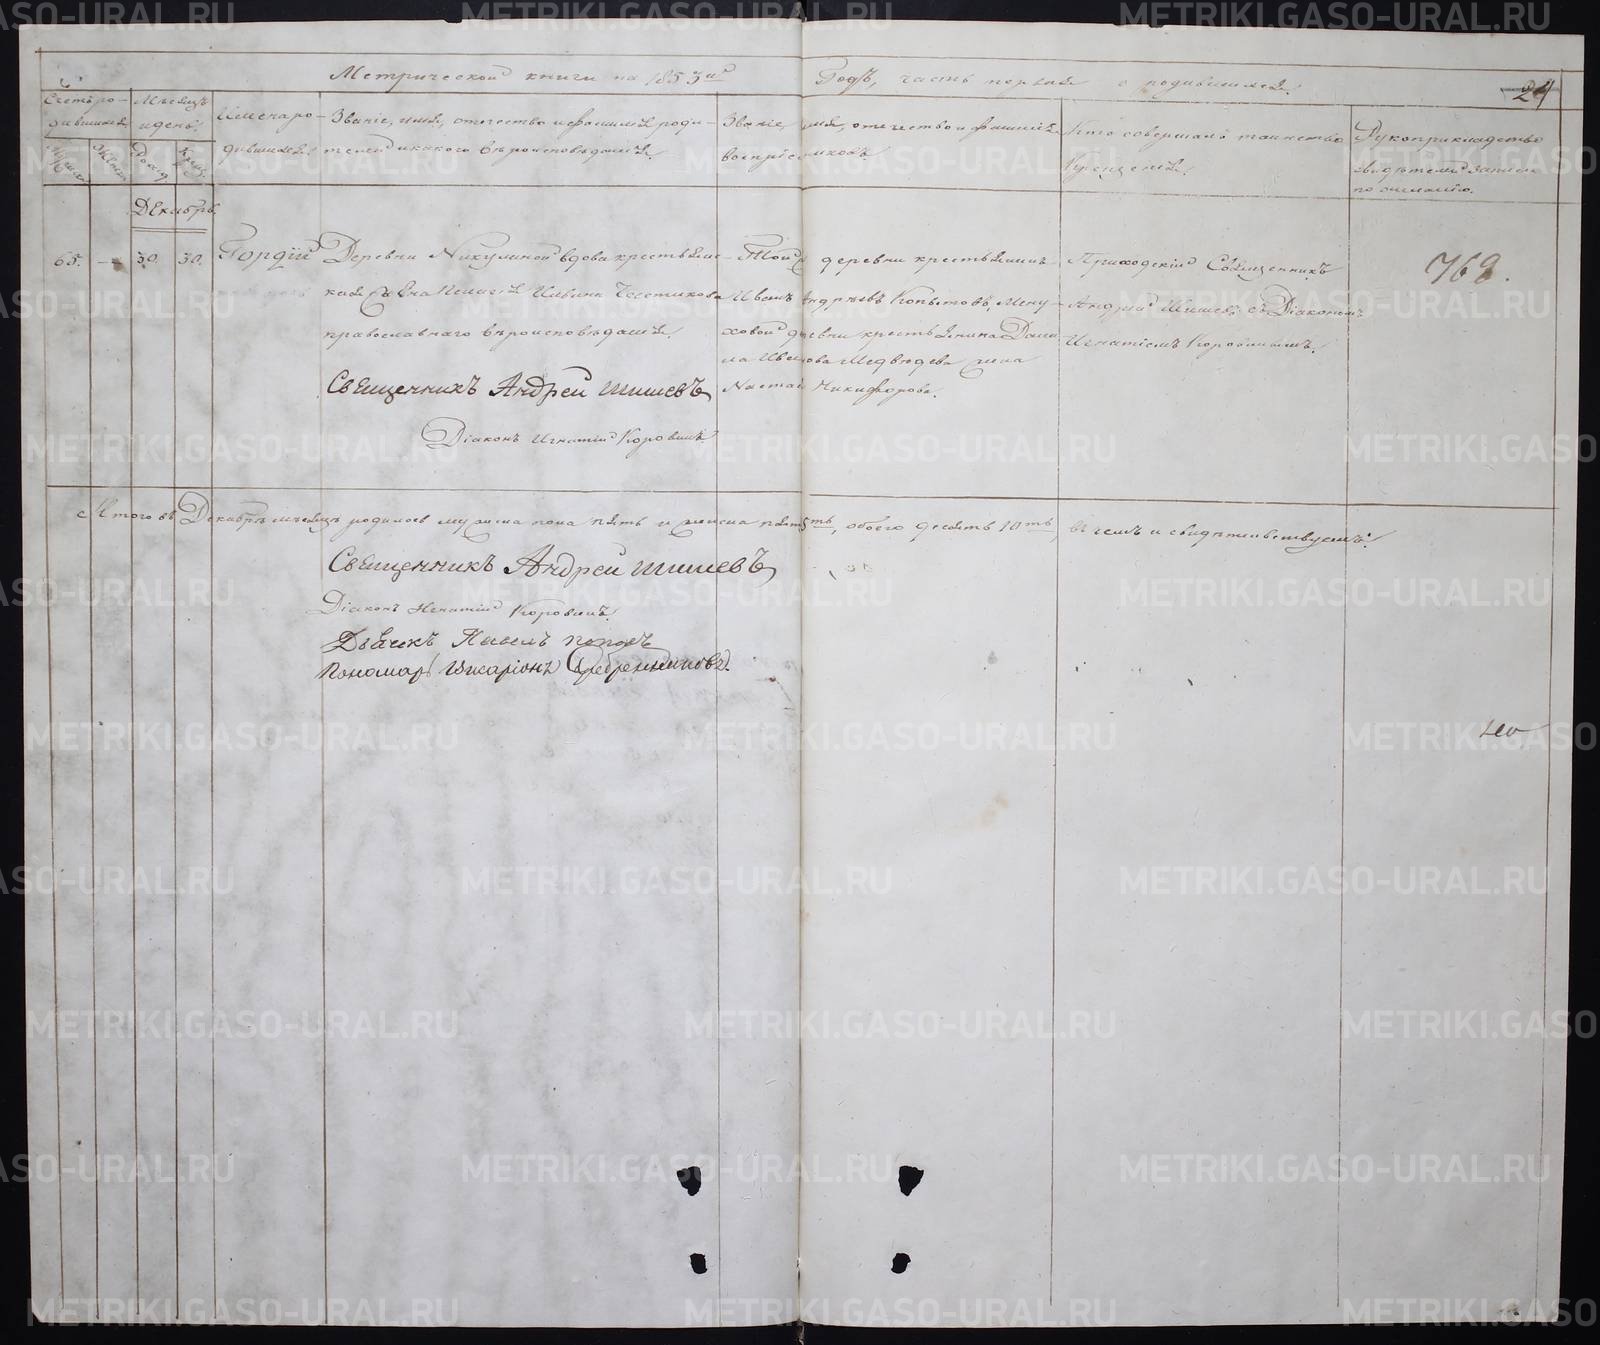 Метрической книги на 1853й Годъ, часть первая о родившихся.
24
Счетъ ро-
дившихся
Мѣсяцъ
и день.
Имена ро-
дившихся.
Званіе, имя, отечество и фамилія роди-
телей и какого вѣроисповѣданія.
Званіе, имя, отечество и фамилія
воспріемниковъ.
Кто совершалъ таинство
Крещенія.
Рукоприкладство
свидѣтелей записи
по желанію.
Декабрь.
65. — 30. 30. Гордій
Деревни Микулиной вдова крестьянс-
кая Пелагея Ильина
православнаго вѣроисповѣданія.
Священникъ Андрей Шишевъ
Діаконъ Игнатій Коровинъ
Той деревни крестьянинъ
Иванъ Андрѣевъ Копытовъ,
ховой деревни крестьянина Дани
ла Иванова Медвѣдева жена
Настасья Никифорова.
Приходскій Священникъ
Андрей Шишевъ съ Діакономъ
Игнатіемъ Коровинымъ.
768.
Итого въ Декабрѣ мѣсяцѣ родилось мужеска пола пять и женска пять 5ть, обоего десять 10ть, въ чемъ и свидѣтельствуемъ:
Священникъ Андрей Шишевъ
Діаконъ Игнатій Коровинъ.
Дьячекъ Павелъ Поповъ
Пономарь Иларіонъ Серебренниковъ.
METRIKI.GASO-URAL.RU